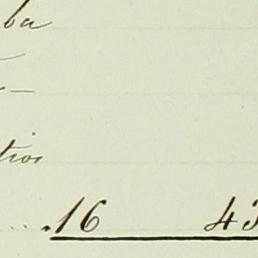 ba
tios
16 43